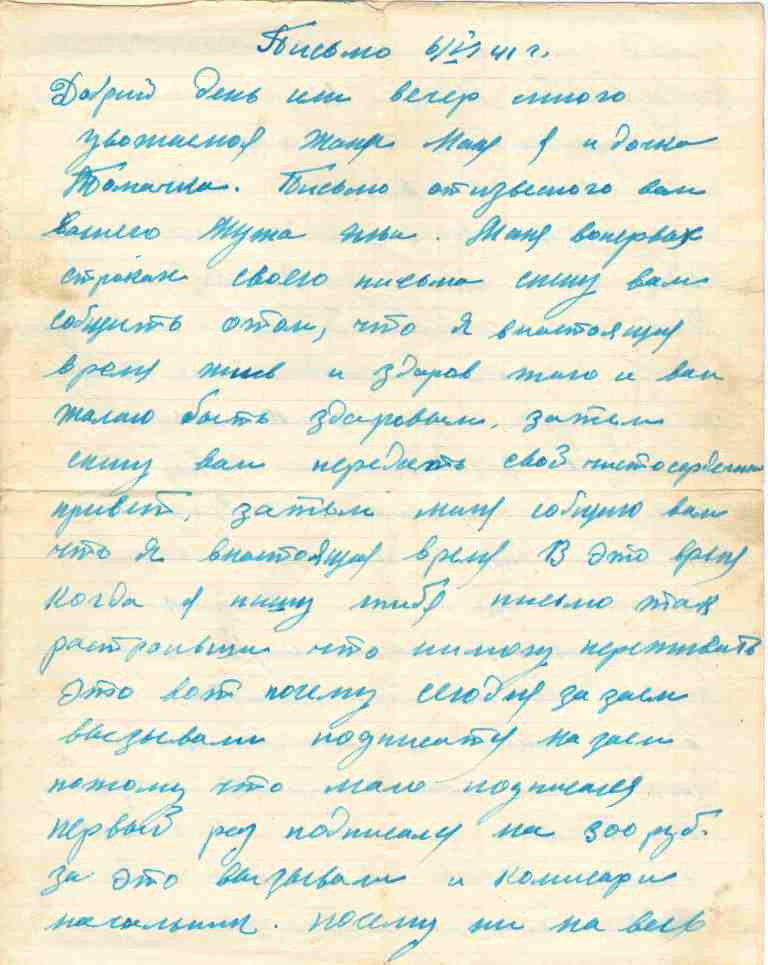 Письмо 6/VI 41 г.
Добрий день или вечер много
уважаемоя жана Маня и дочка
Томачка. Письмо от вам
вашего мужа. Маня вопервах
строках своего письма спшу вам
собщить отом, что я внастоящия
время жив и здоров чаго и вам
жалаю быть здоровым, затем
спшу вам передать свой чистосердечни
привет, затем маня собщаю вам
что я внастоящия время В это время
когда я пишу тибя письмо так
растроивши что нимогу переживать
это вот почему сегодня за заем
вызывали подписатя на заем
потому что мало подписался
первый раз подписался на 300 руб.
за это вызывали и комисари
начальники. почему ни на весь